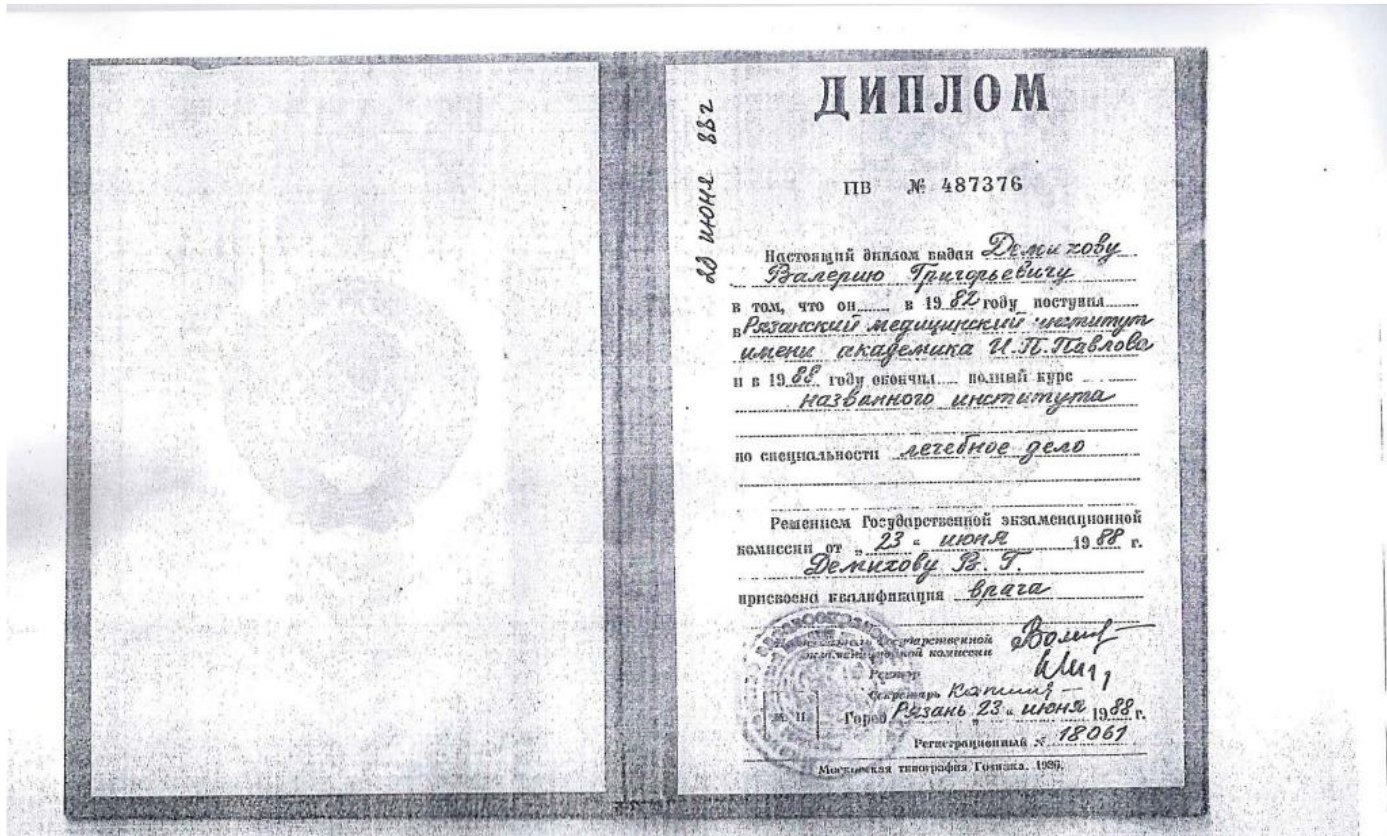 ДИПЛОМ
ПВ № 487376
Настоящий диплом выдан Демихову
Валерию Григорьевичу
в том, что он в 1982 году поступил
в Рязанский медицинский институт
имени академика И.П.Павлова
и в 1988 году окончил полный курс
названного института
по специальности лечебное дело
Решением Государственной экзаменационной
комиссии от „23“ июня 1988 г.
Демихову В. Г.
присвоена квалификация врача
Государственной
экзаменационной комиссии
Ректор
Секретарь
М. П.
Город Рязань „23“ июня 1988 г.
Регистрационный № 18061
Московская типография Гознака. 1986.
июня 88г